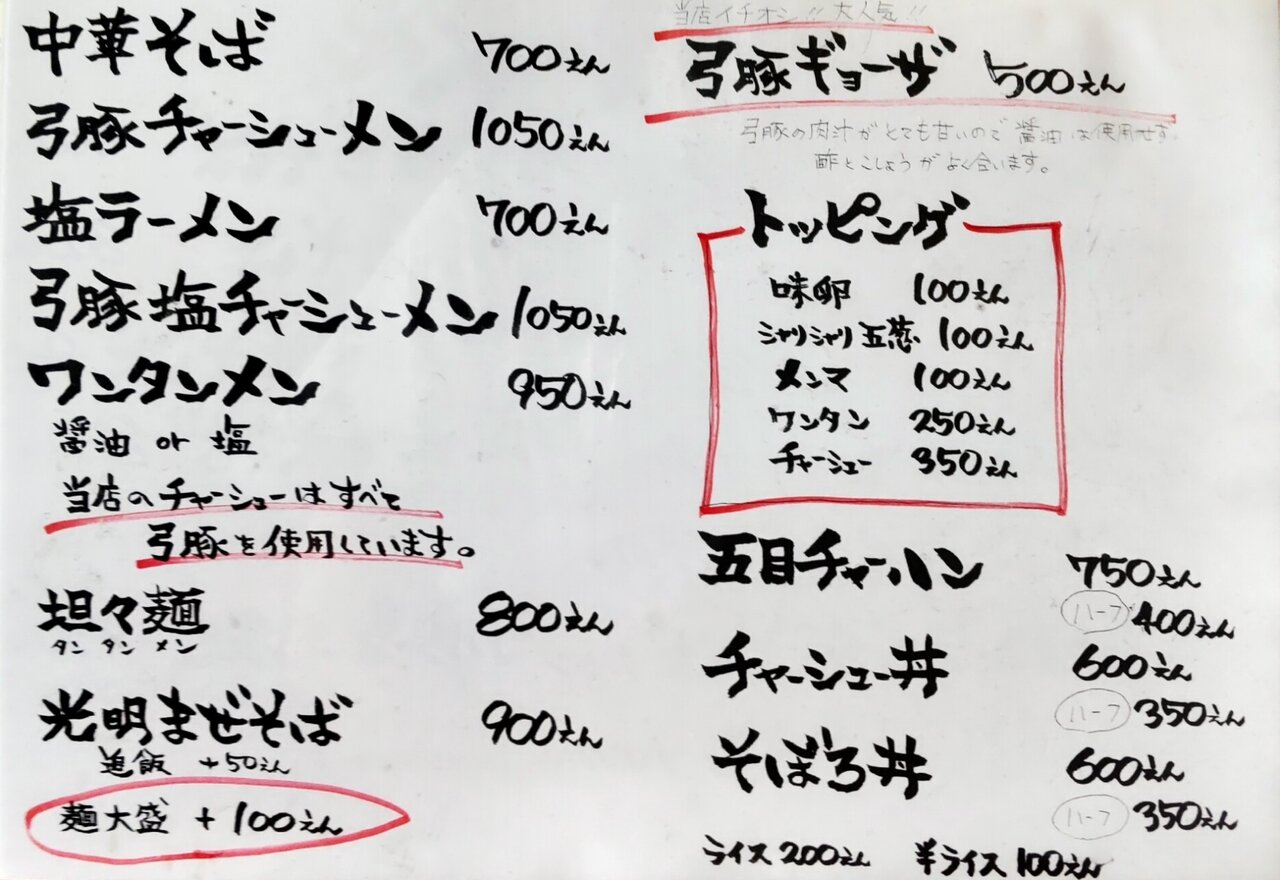 中華そば 700えん
弓豚チャーシューメン 1050えん
塩ラーメン 700えん
弓豚塩チャーシューメン 1050えん
ワンタンメン 950えん
醤油 or 塩
当店のチャーシューはすべて
弓豚を使用しています。
坦々麺 800えん
タンタンメン
光明まぜそば 900えん
追飯 +50えん
麺大盛 + 100えん
当店イチオシ!! 大人気!!
弓豚ギョーザ 500えん
弓豚の肉汁がとても甘いので 醤油は使用せず
酢とこしょうがよく合います。
トッピング
味卵 100えん
シャリシャリ玉葱 100えん
メンマ 100えん
ワンタン 250えん
チャーシュー 350えん
五目チャーハン 750えん
ハーフ 400えん
チャーシュー丼 600えん
ハーフ 350えん
そぼろ丼 600えん
ハーフ 350えん
ライス 200えん 半ライス 100えん